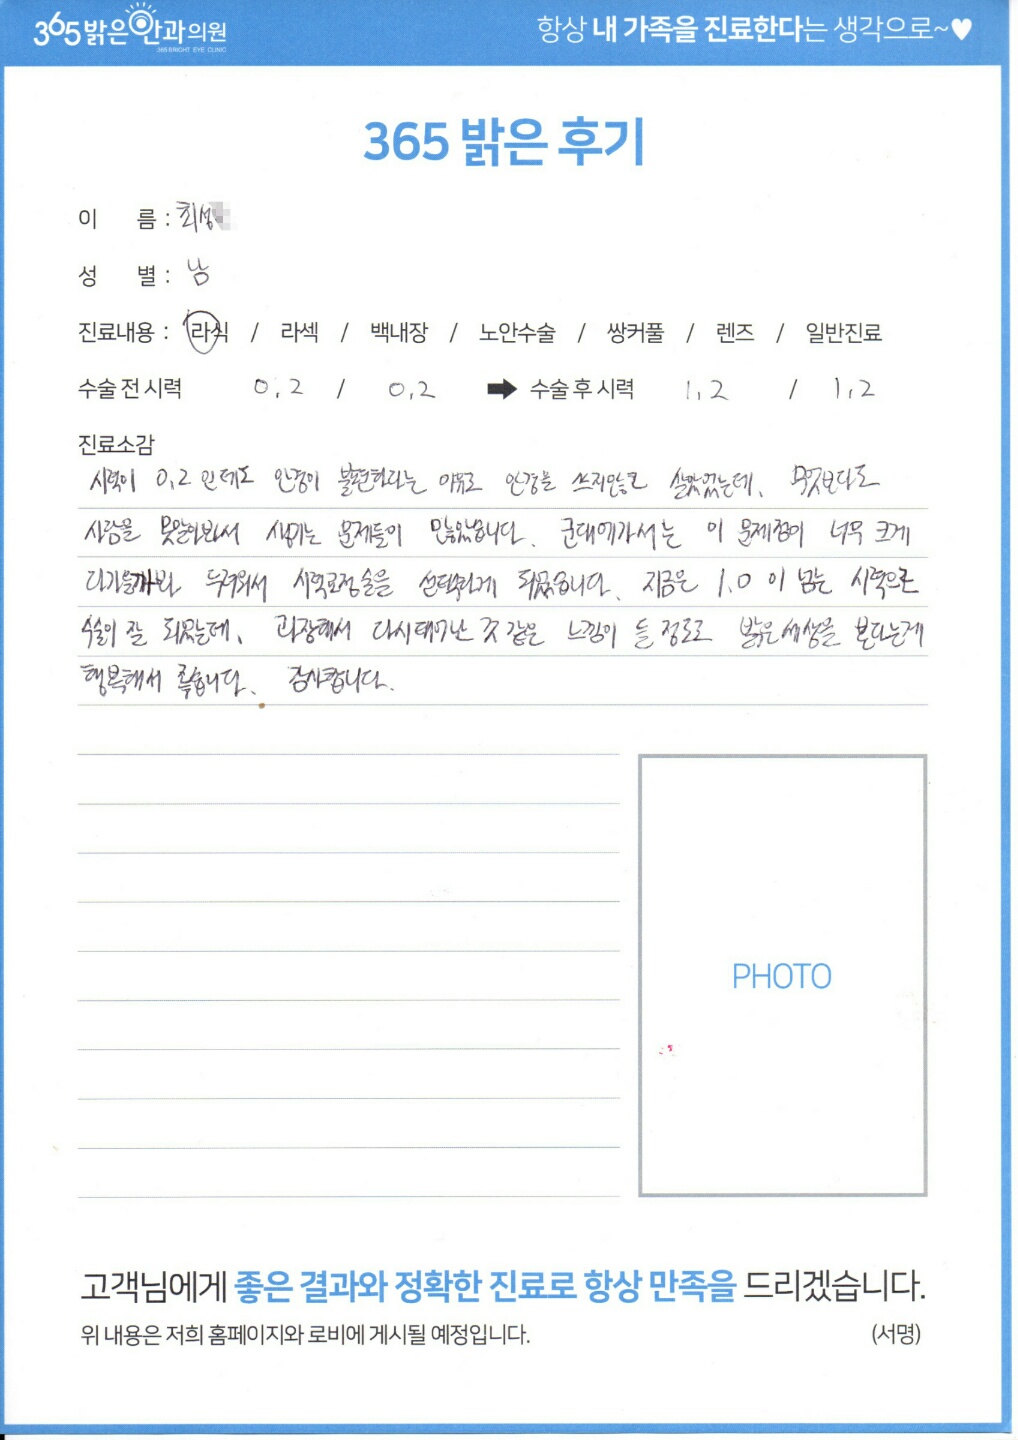 365밝은안과의원
365 BRIGHT EYE CLINIC
항상 내 가족을 진료한다는 생각으로~♥
365 밝은 후기
이 름 : 최성
성 별 : 남
진료내용 : 라식 / 라섹 / 백내장 / 노안수술 / 쌍커풀 / 렌즈 / 일반진료
수술 전 시력 0.2 / 0.2 ➡ 수술 후 시력 1.2 / 1.2
진료소감
시력이 0.2 인데도 안경이 불편하다는 이유로 안경을 쓰지않고 살았었는데, 무엇보다도
사람을 못알아봐서 생기는 문제들이 많았습니다. 군대에가서는 이 문제점이 너무 크게
다가올까봐 두려워서 시력교정술을 선택하게 되었습니다. 지금은 1.0 이 넘는 시력으로
수술이 잘 되었는데, 과장해서 다시태어난 것 같은 느낌이 들 정도로 밝은세상을 본다는게
행복해서 좋습니다. 감사합니다.
PHOTO
고객님에게 좋은 결과와 정확한 진료로 항상 만족을 드리겠습니다.
위 내용은 저희 홈페이지와 로비에 게시될 예정입니다. (서명)